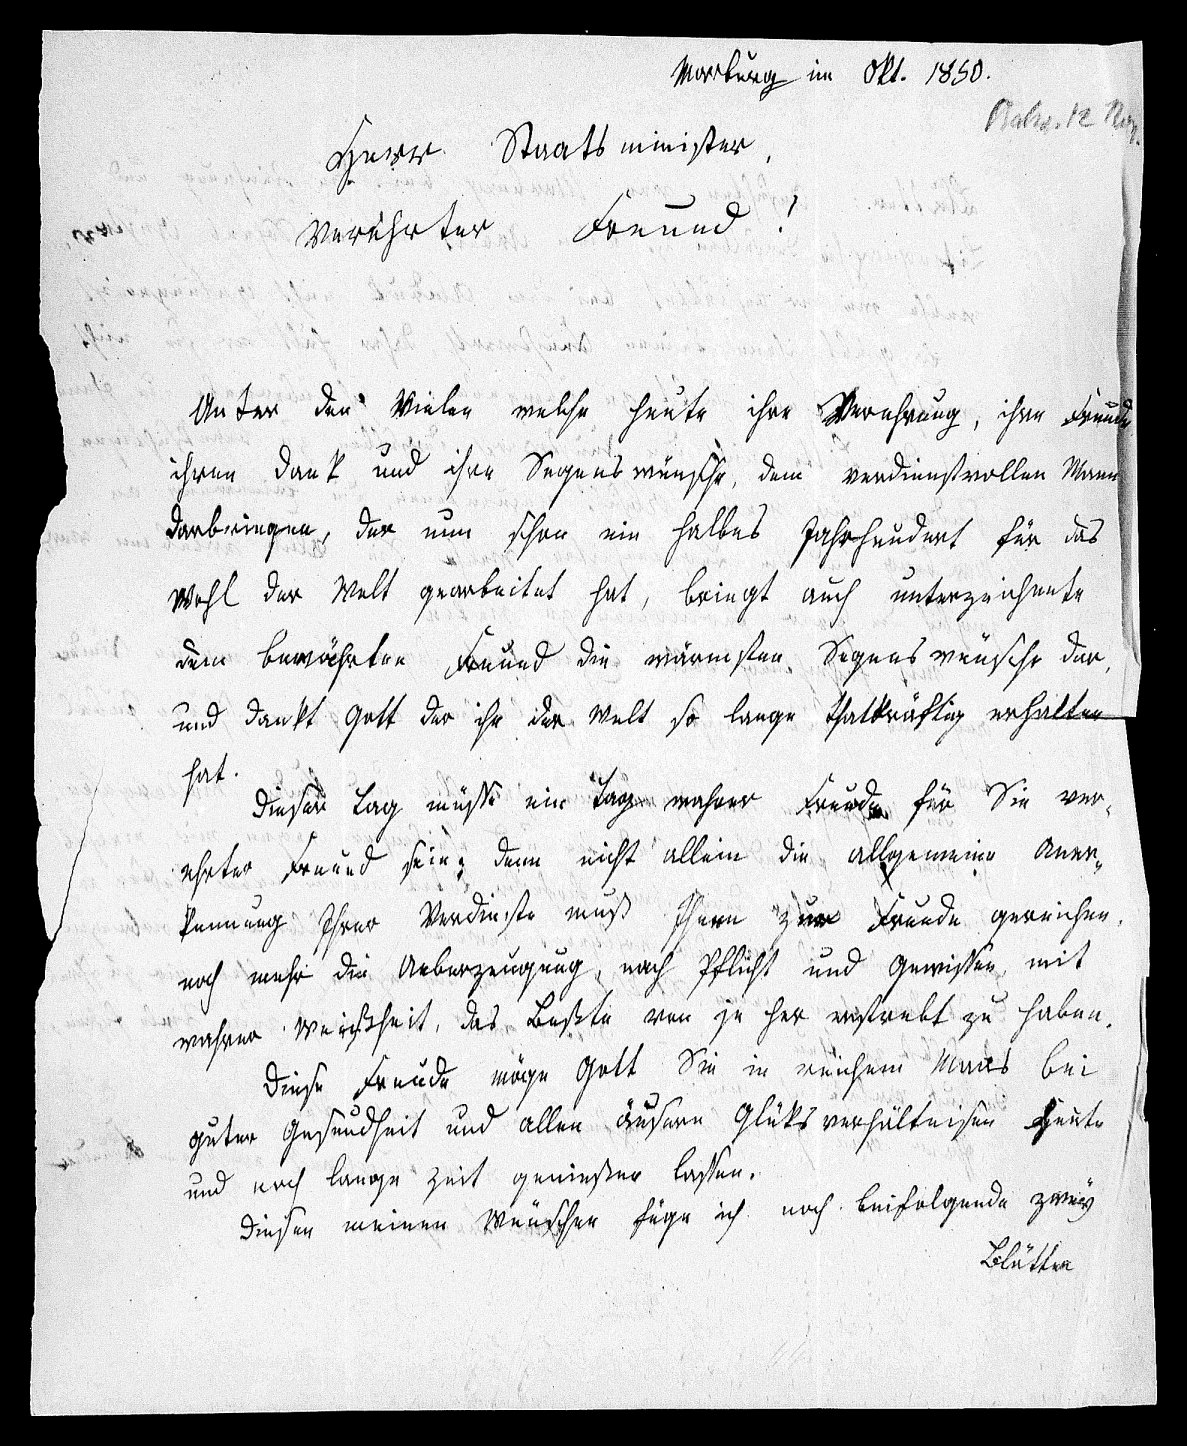 Marburg im Okt. 1850.
Herr Staatsminister,
Verehrter Freund!
Unter den Vielen welche heute ihre Verehrung, ihre Freude
ihren Dank und ihre Segenswünsche, dem verdienstvollen Mann
darbringen, der nun schon ein halbes Jahrhundert für das
Wohl der Welt gearbeitet hat, bringt auch unterzeichnete
dem bewährten Freund die wärmsten Segenswünsche dar,
und dankt Gott der ihn der Welt so lange thatkräftig erhalten
hat.
Dieser Tag müsse ein Tag wahrer Freude für Sie ver-
ehrter Freund sein; denn nicht allein die allgemeine Aner-
kennung Ihrer Verdienste muß Ihnen zur Freude gereichen,
noch mehr die Ueberzeugung, nach Pflicht und Gewissen, mit
wahrer Weißheit, das Beßte von je her erstrebt zu haben.
Diese Freude möge Gott Sie in reichem Maas bei
guter Gesundheit und allen äusern Glüksverhältnisen heute
und noch lange Zeit genießen lassen.
Diesen meinen Wünschen füge ich noch beifolgende zwey
Blätter